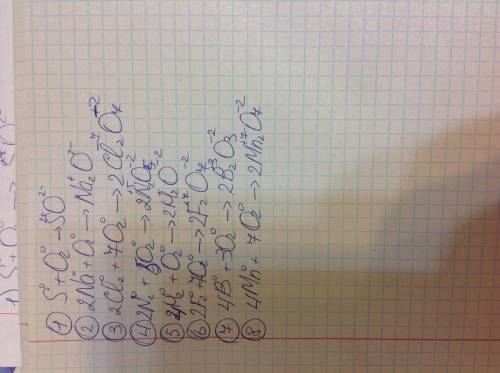 ① S⁰ + O₂⁰ → SO²⁻
② 2Na⁰ + O₂⁰ → Na₂⁺O²⁻
③ 2Cl₂⁰ + 7O₂⁰ → 2Cl₂O₇
④ 2N₂⁰ + 5O₂⁰ → 2N₂O₅⁻²
⑤ 4N₂⁰ + O₂⁰ → 2N₂O⁻²
⑥ 2F₂ + 7O₂⁰ → 2F₂⁺⁷O₇⁻²
⑦ 4B⁰ + 3O₂⁰ → 2B₂⁺³O₃⁻²
⑧ 4Mn⁰ + 7O₂⁰ → 2Mn₂⁺⁷O₇⁻²